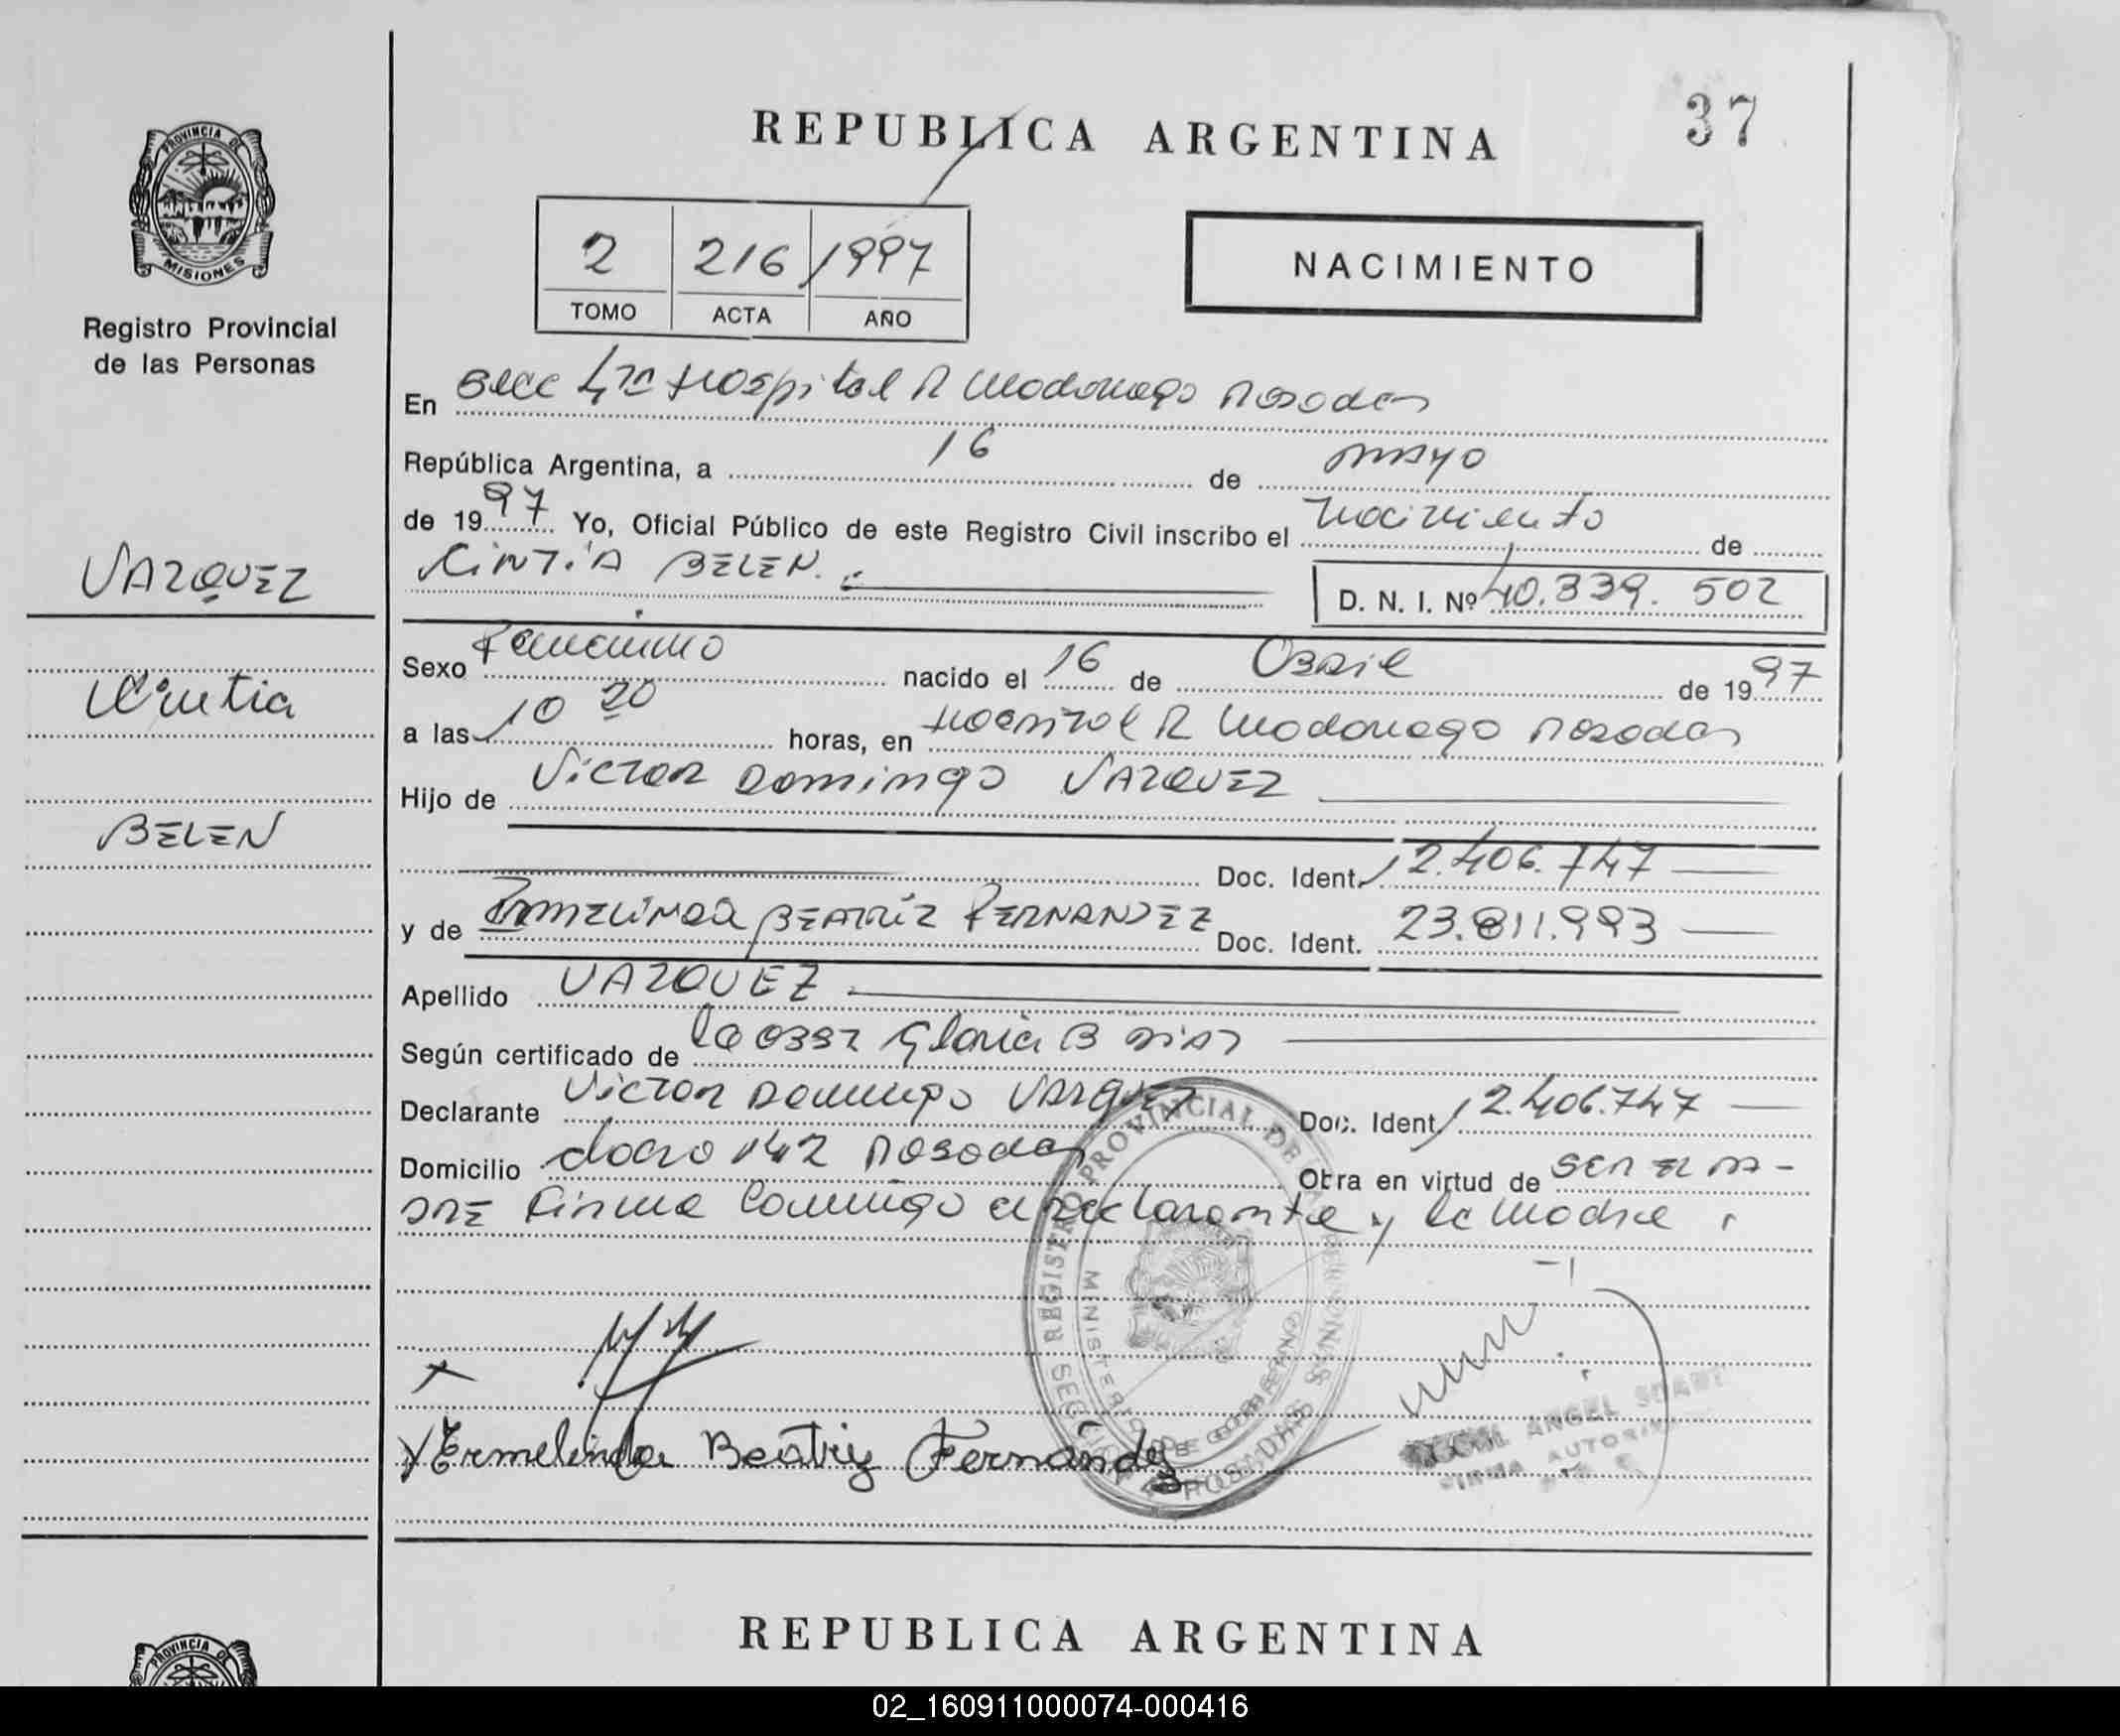 37
REPUBLICA ARGENTINA
PROVINCIA DE
MISIONES
Registro Provincial
de las Personas
2 216 1997
TOMO ACTA AÑO
NACIMIENTO
En Secc 4ta Hospital R Madonago Posadas
República Argentina, a 16 de mayo
de 1997 Yo, Oficial Público de este Registro Civil inscribo el Nacimiento de
CINTIA BELEN.
D. N. I. Nº 40.339.502
VAZQUEZ
Cintia
BELEN
Sexo Femenino nacido el 16 de Abril de 1997
a las 10 20 horas, en Hospital R Madonago Posadas
Hijo de Victor Domingo VAZQUEZ
Doc. Ident. 12.406.747
y de ERMELINDA BEATRIZ FERNANDEZ Doc. Ident. 23.811.993
Apellido VAZQUEZ
Según certificado de la Obst Gloria B Dias
Declarante Victor Domingo Vazquez Doc. Ident. 12.406.747
Domicilio 142 Posadas Obra en virtud de ser el pa-
dre firma conmigo el declarante y la madre
REGISTRO PROVINCIAL DE LAS PERSONAS
MINISTERIO DE GOBIERNO
POSADAS
Ermelinda Beatriz Fernández
ANGEL
FIRMA AUTORIZADA
REPUBLICA ARGENTINA
PROVINCIA DE
02_160911000074-000416